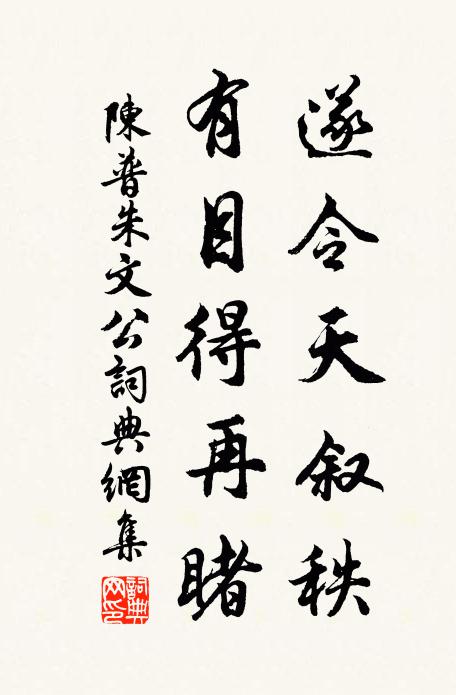 遂令天叙秩
有目得再睹
陳普朱文公詞典網集
詞典網印